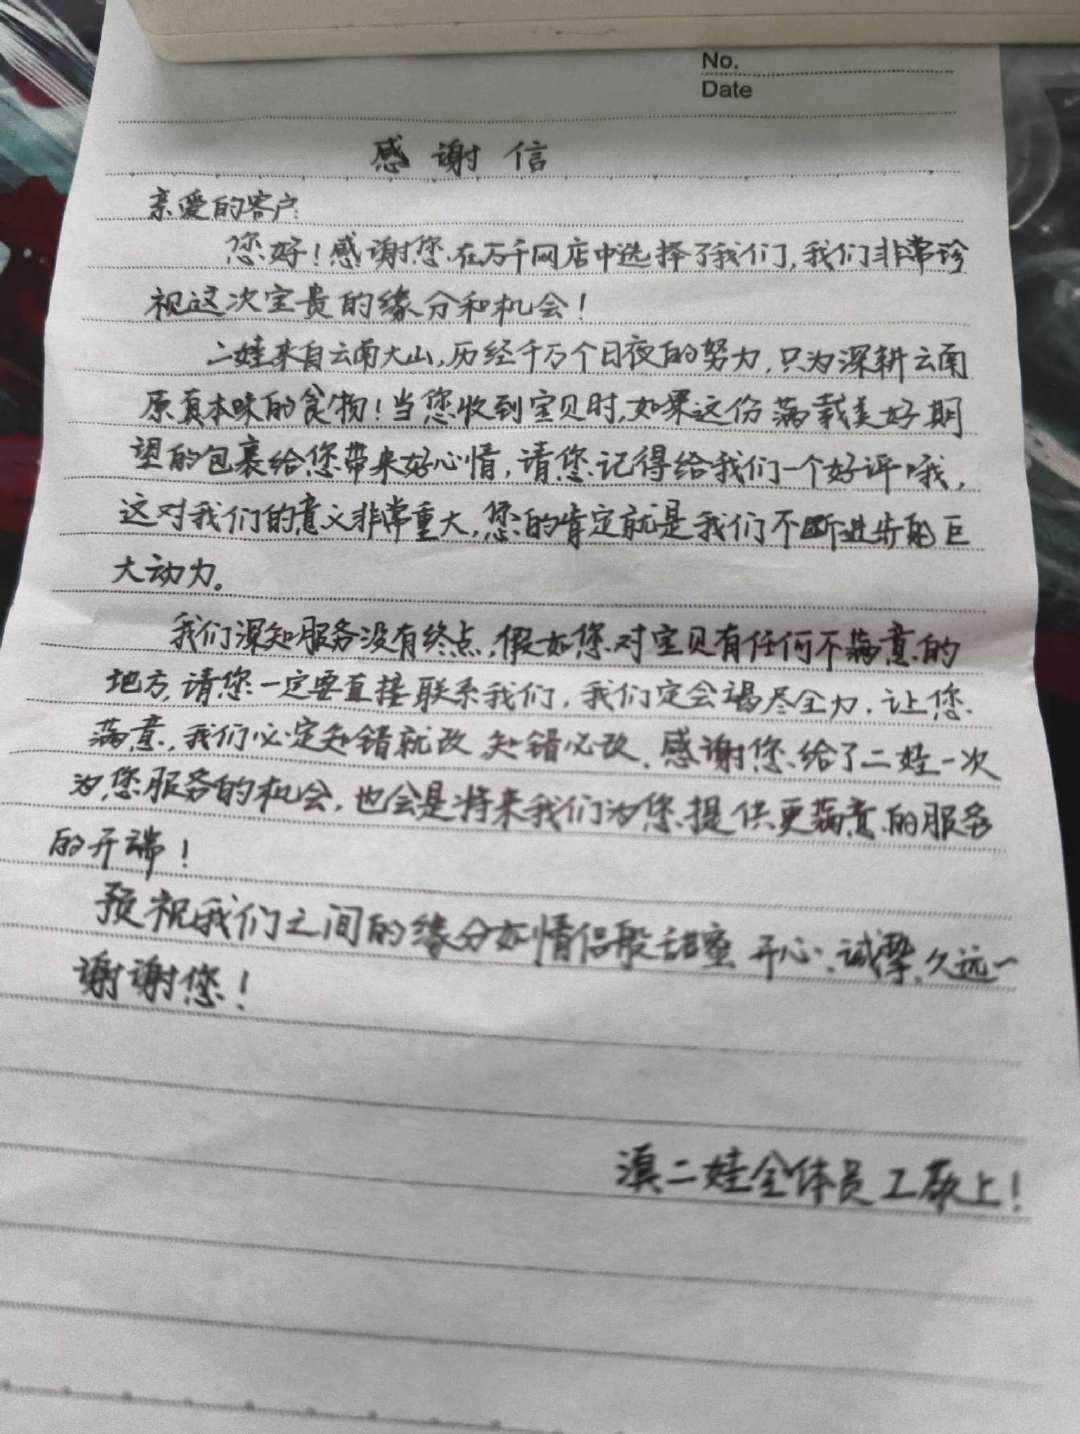 No.
Date
感谢信
亲爱的客户:
您好！感谢您在万千网店中选择了我们，我们非常珍
视这次宝贵的缘分和机会！
二娃来自云南大山，历经千万个日夜的努力，只为深耕云南
原真本味的食物！当您收到宝贝时，如果这份满载美好期
望的包裹给您带来好心情，请您记得给我们一个好评哦，
这对我们的意义非常重大，您的肯定就是我们不断进步的巨
大动力。
我们深知服务没有终点，假如您对宝贝有任何不满意的
地方，请您一定要直接联系我们，我们定会竭尽全力，让您
满意，我们必定知错就改 知错必改，感谢您给了二娃一次
为您服务的机会，也会是将来我们为您提供更满意的服务
的开端！
预祝我们之间的缘分如情侣般甜蜜 开心、诚挚、久远～
谢谢您！
滇二娃全体员工敬上！